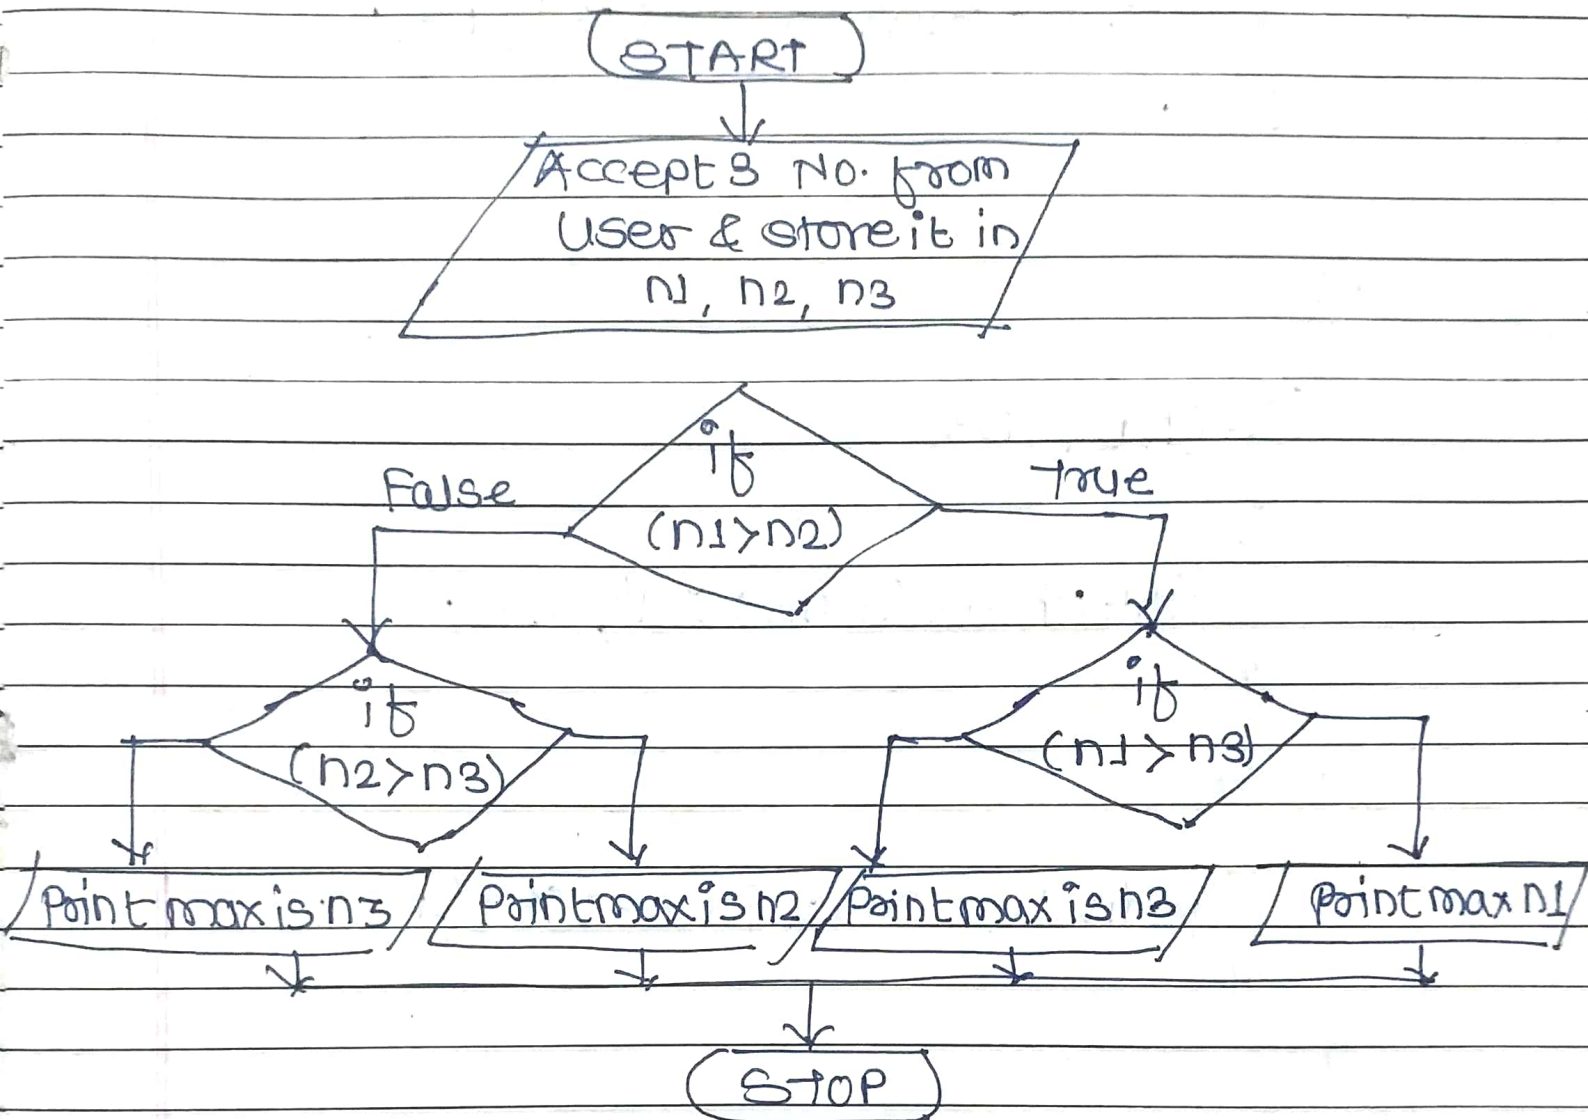 START
Accept 3 No. from
user & store it in
n1, n2, n3
if
(n1>n2)
False
True
if
(n2>n3)
if
(n1>n3)
Print max is n3
Print max is n2
Print max is n3
Print max n1
STOP